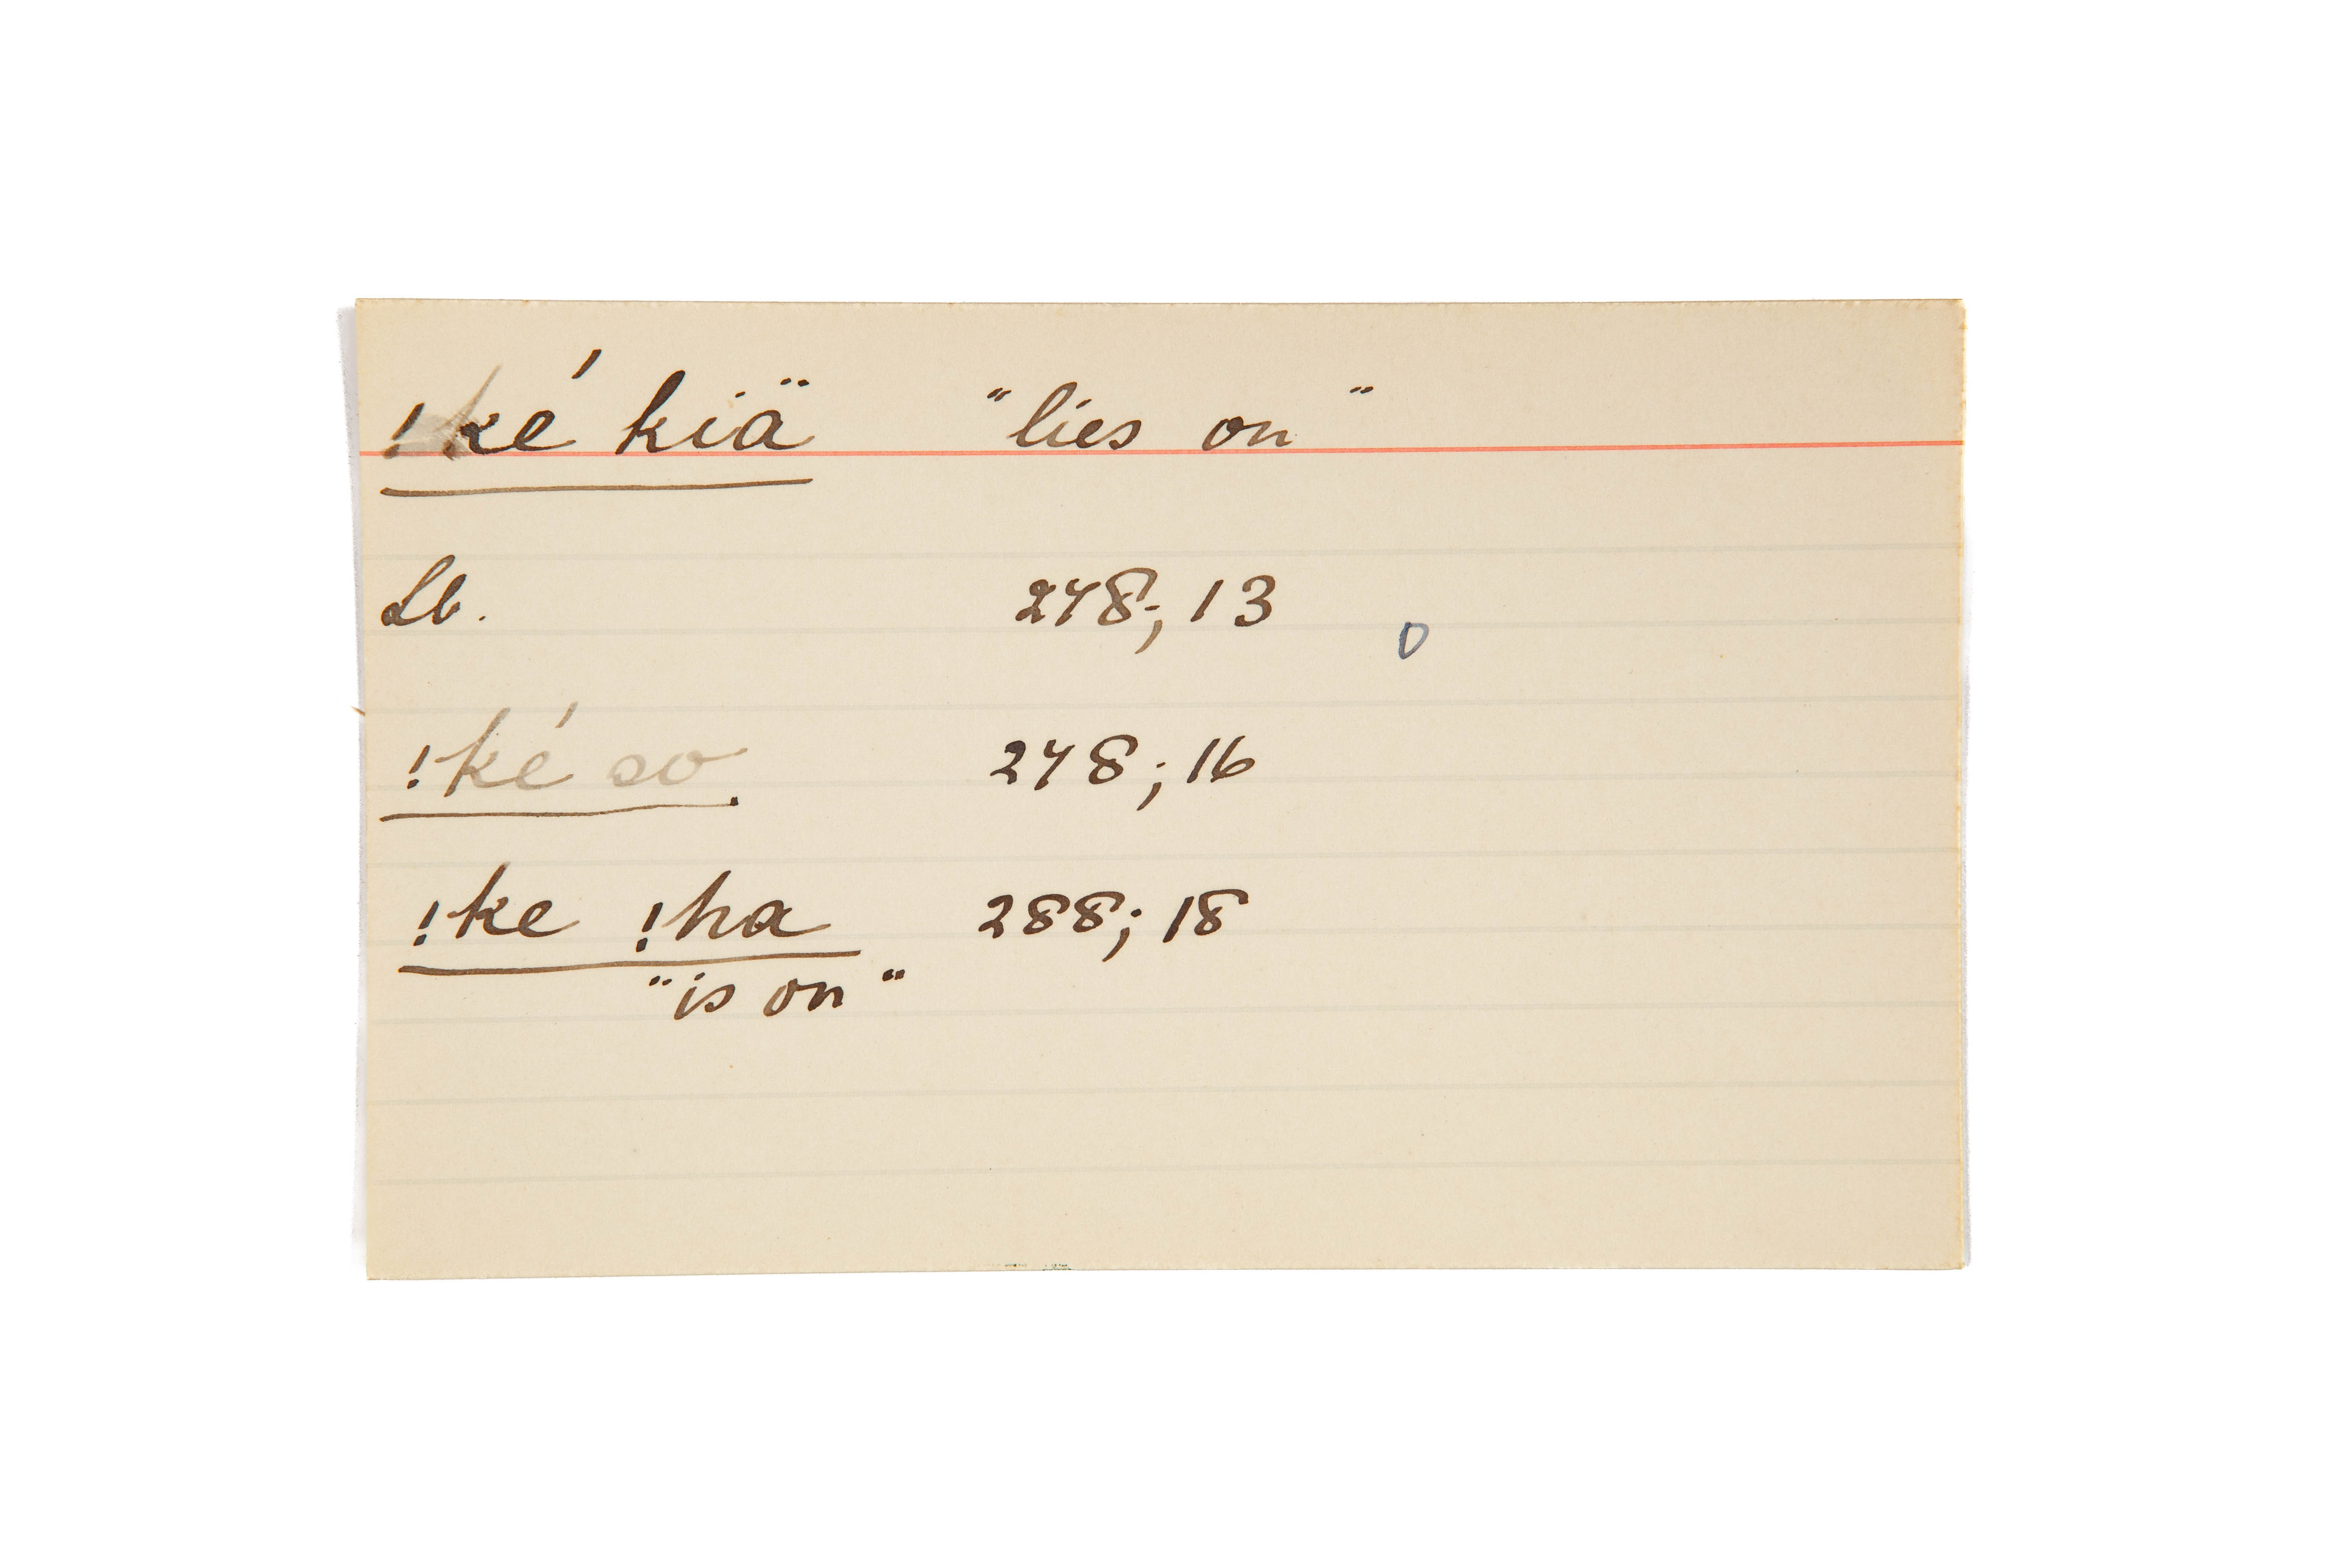 !ké kiä "lies on"
Lb. 248; 13 0
!ké so 248; 16
!ke !ha 288; 18
"is on"